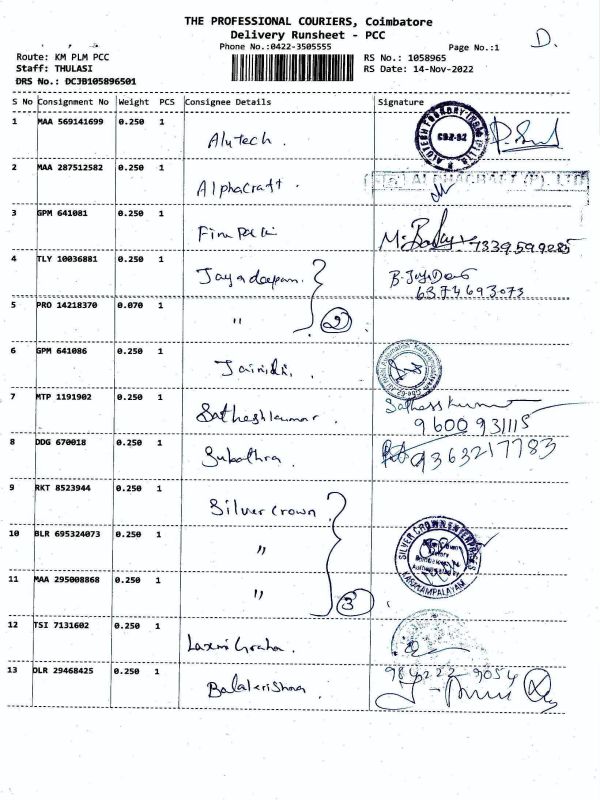 THE PROFESSIONAL COURIERS, Coimbatore
Delivery Runsheet - PCC
Phone No.:0422-3505555
Page No.:1
D.
Route: KM PLM PCC
RS No.: 1058965
Staff: THULASI
RS Date: 14-Nov-2022
DRS No.: DCJB105896501
S No Consignment No Weight PCS Consignee Details Signature
1 MAA 569141699 0.250 1 Alutech.
2 MAA 287512582 0.250 1 Alphacraft.
3 GPM 641081 0.250 1 7339599285
4 TLY 10036881 0.250 1 Jayadeepam. 6374693073
5 PRO 14218370 0.070 1 " 2
6 GPM 641086 0.250 1
7 MTP 1191902 0.250 1 Satheshkumar. 9600931115
8 DDG 670018 0.250 1 Subathra. 9363217783
9 RKT 8523944 0.250 1 Silver Crown
10 BLR 695324073 0.250 1 " SILVER CROWN ENTERPRISES
11 MAA 295008868 0.250 1 " 3
12 TSI 7131602 0.250 1
13 DLR 29468425 0.250 1 Balakrishna. 984222-9054